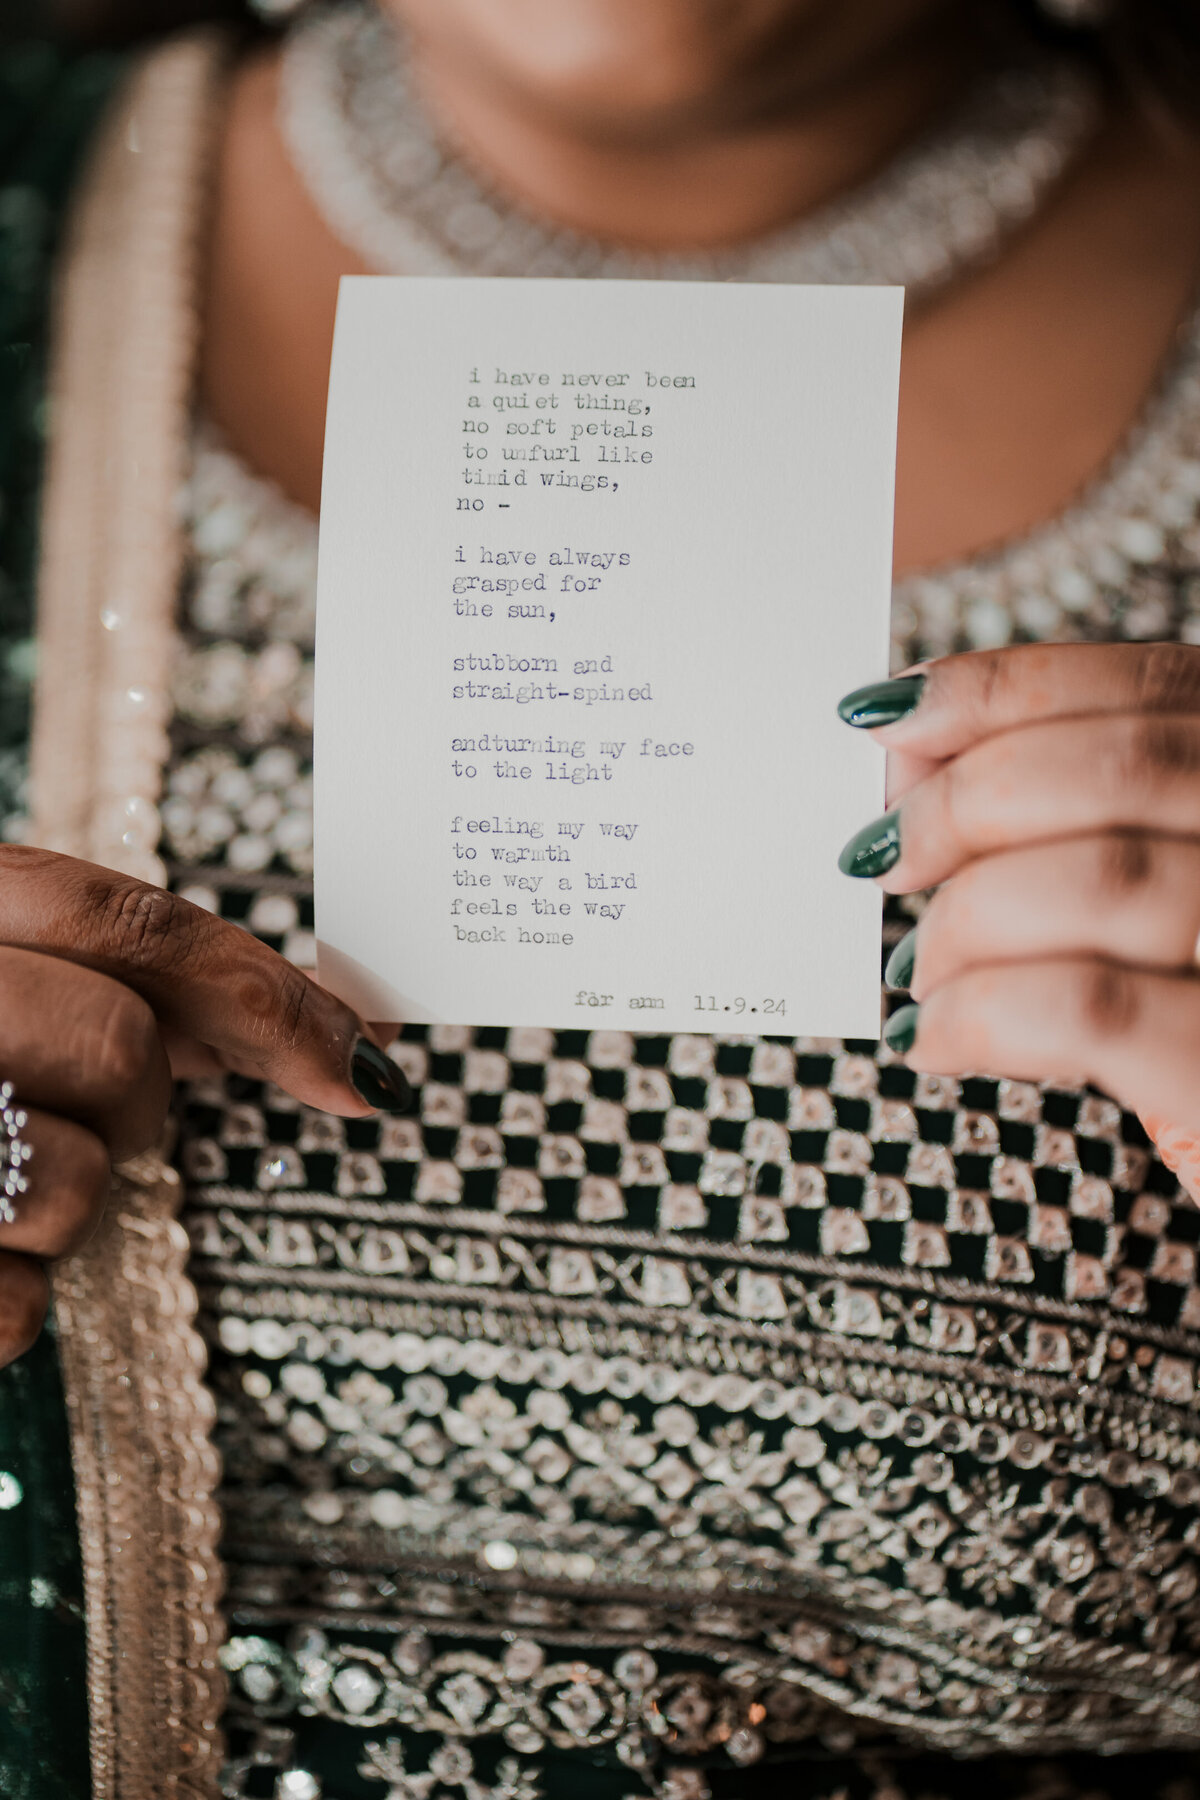 i have never been
a quiet thing,
no soft petals
to unfurl like
timid wings,
no -
i have always
grasped for
the sun,
stubborn and
straight-spined
andturning my face
to the light
feeling my way
to warmth
the way a bird
feels the way
back home
for ann 11.9.24